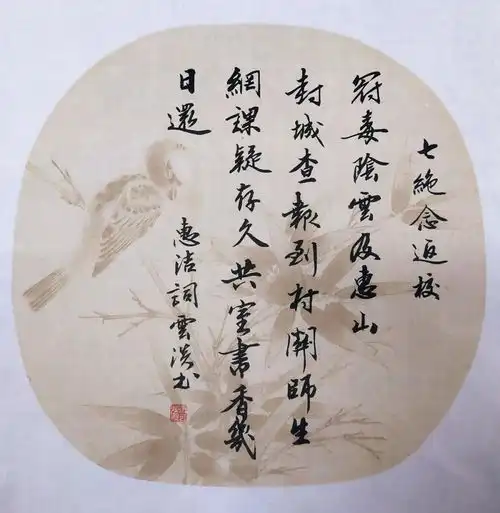 七絶念返校
冠毒陰雲沒惠山
封城查報到村關師生
網課疑存久共室書香幾
日還
惠洁詞雲淡书